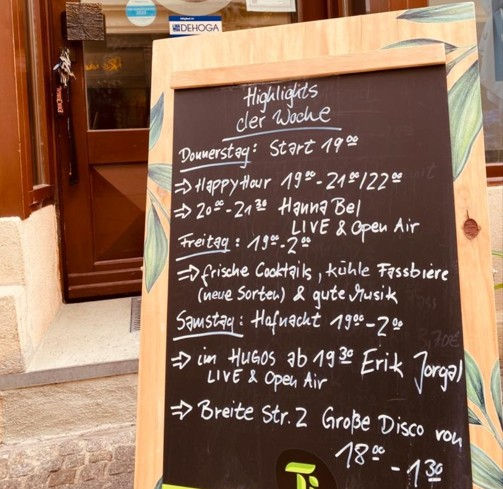 DEHOGA
Highlights
der Woche
Donnerstag: Start 19⁰⁰
⇒ Happy Hour 19⁰⁰-21⁰⁰/22⁰⁰
⇒ 20⁰⁰-21³⁰ Hanna Bel
LIVE & Open Air
Freitag: 19⁰⁰-2⁰⁰
⇒ frische Cocktails, kühle Fassbiere
(neue Sorten) & gute Musik
Samstag: Hofnacht 19⁰⁰-2⁰⁰
⇒ im HUGOS ab 19³⁰ Erik Jorgal
LIVE & Open Air
⇒ Breite Str. 2 Große Disco von
18⁰⁰-1³⁰